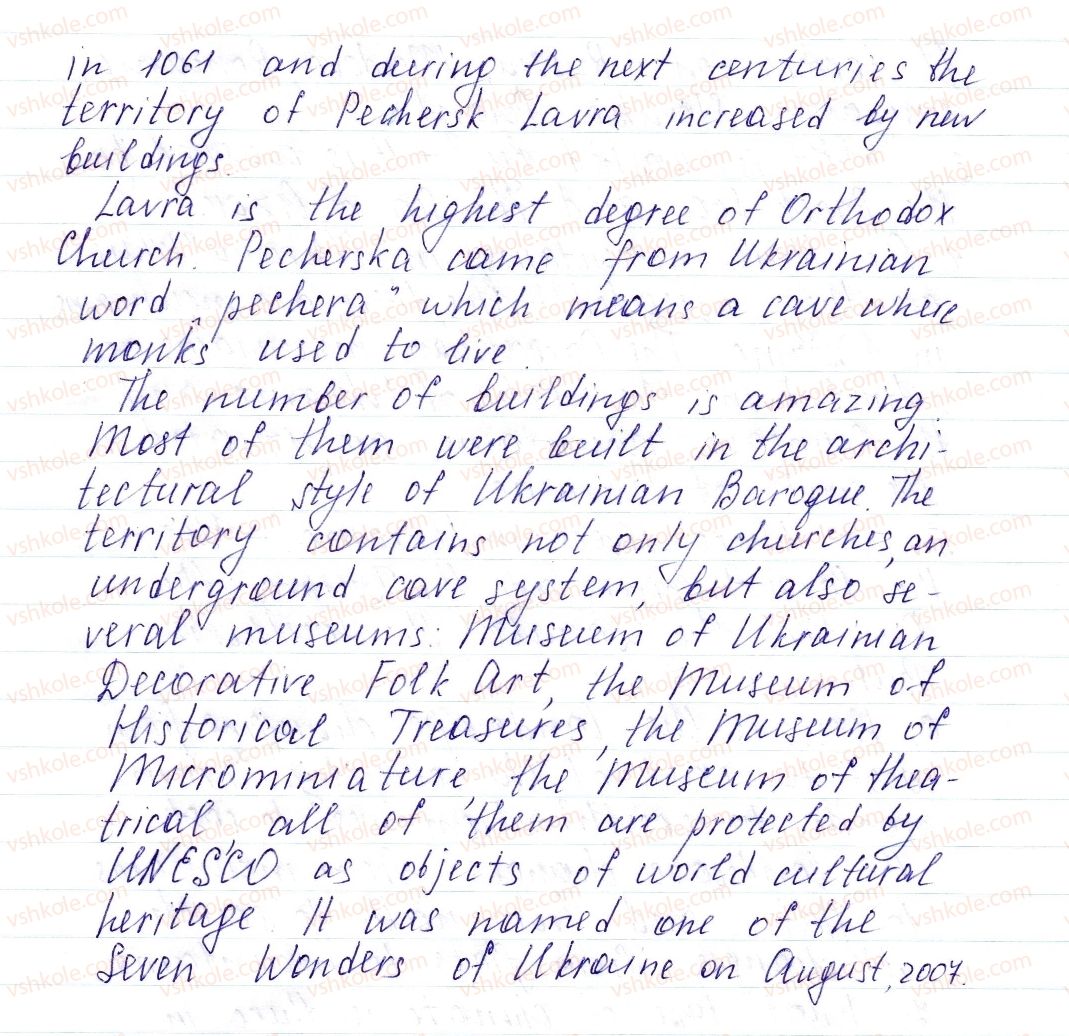 in 1061 and during the next centuries the
territory of Pechersk Lavra increased by new
buildings.
Lavra is the highest degree of Orthodox
Church. Pecherska came from Ukrainian
word „pechera" which means a cave where
monks used to live.
The number of buildings is amazing.
Most of them were built in the archi-
tectural style of Ukrainian Baroque. The
territory contains not only churches, an
underground cave system, but also se-
veral museums: Museum of Ukrainian
Decorative Folk Art, the Museum of
Historical Treasures, the Museum of
Microminiature, the Museum of thea-
trical, all of them are protected by
UNESCO as objects of world cultural
heritage. It was named one of the
Seven Wonders of Ukraine on August, 2007.
vshkole.com